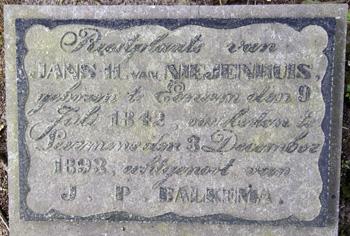 Rustplaats van
JANS H. van NIEJENHUIS,
geboren te Eenrum den 9
Juli 1842, overleden te
den 3 December
1893, echtgenoot van
J. P. BALKEMA.